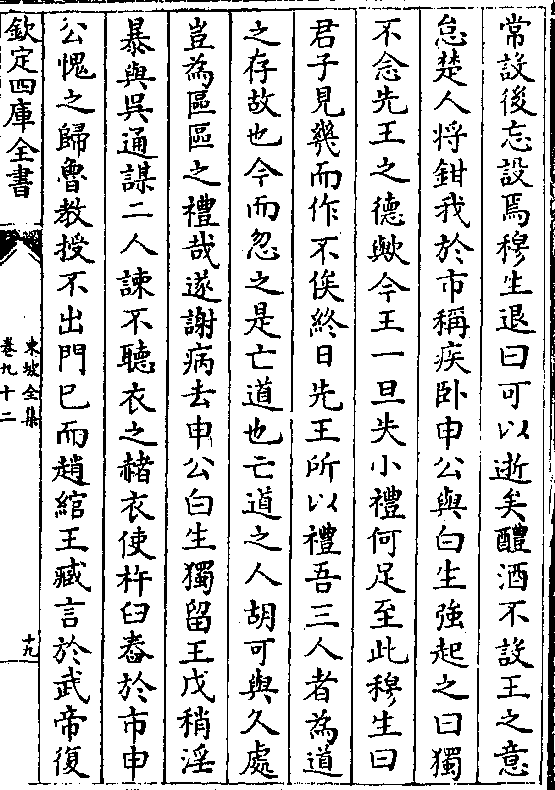 常設後忘設焉穆生退曰可以逝矣醴酒不設王之意
怠楚人将鉗我於市稱疾卧申公與白生強起之曰獨
不念先王之德歟今王一旦失小禮何足至此穆生曰
君子見幾而作不俟終日先王所以禮吾三人者為道
之存故也今而忽之是亡道也亡道之人胡可與久處
豈為區區之禮哉遂謝病去申公白生獨留王戊稍淫
暴與呉通謀二人諫不聽衣之赭衣使杵臼舂於市申
公愧之歸魯教授不出門已而趙綰王臧言於武帝復
欽定四庫全書
東坡全集
卷九十二
十九